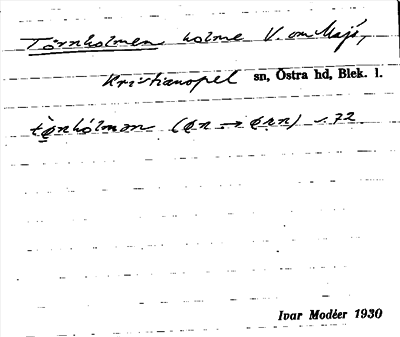 Törnholmen holme V. om Majö,
Kristianopel sn, Östra hd, Blek. l.
tø̀nhólmən (øn → ørn) s. 72
Ivar Modéer 1930